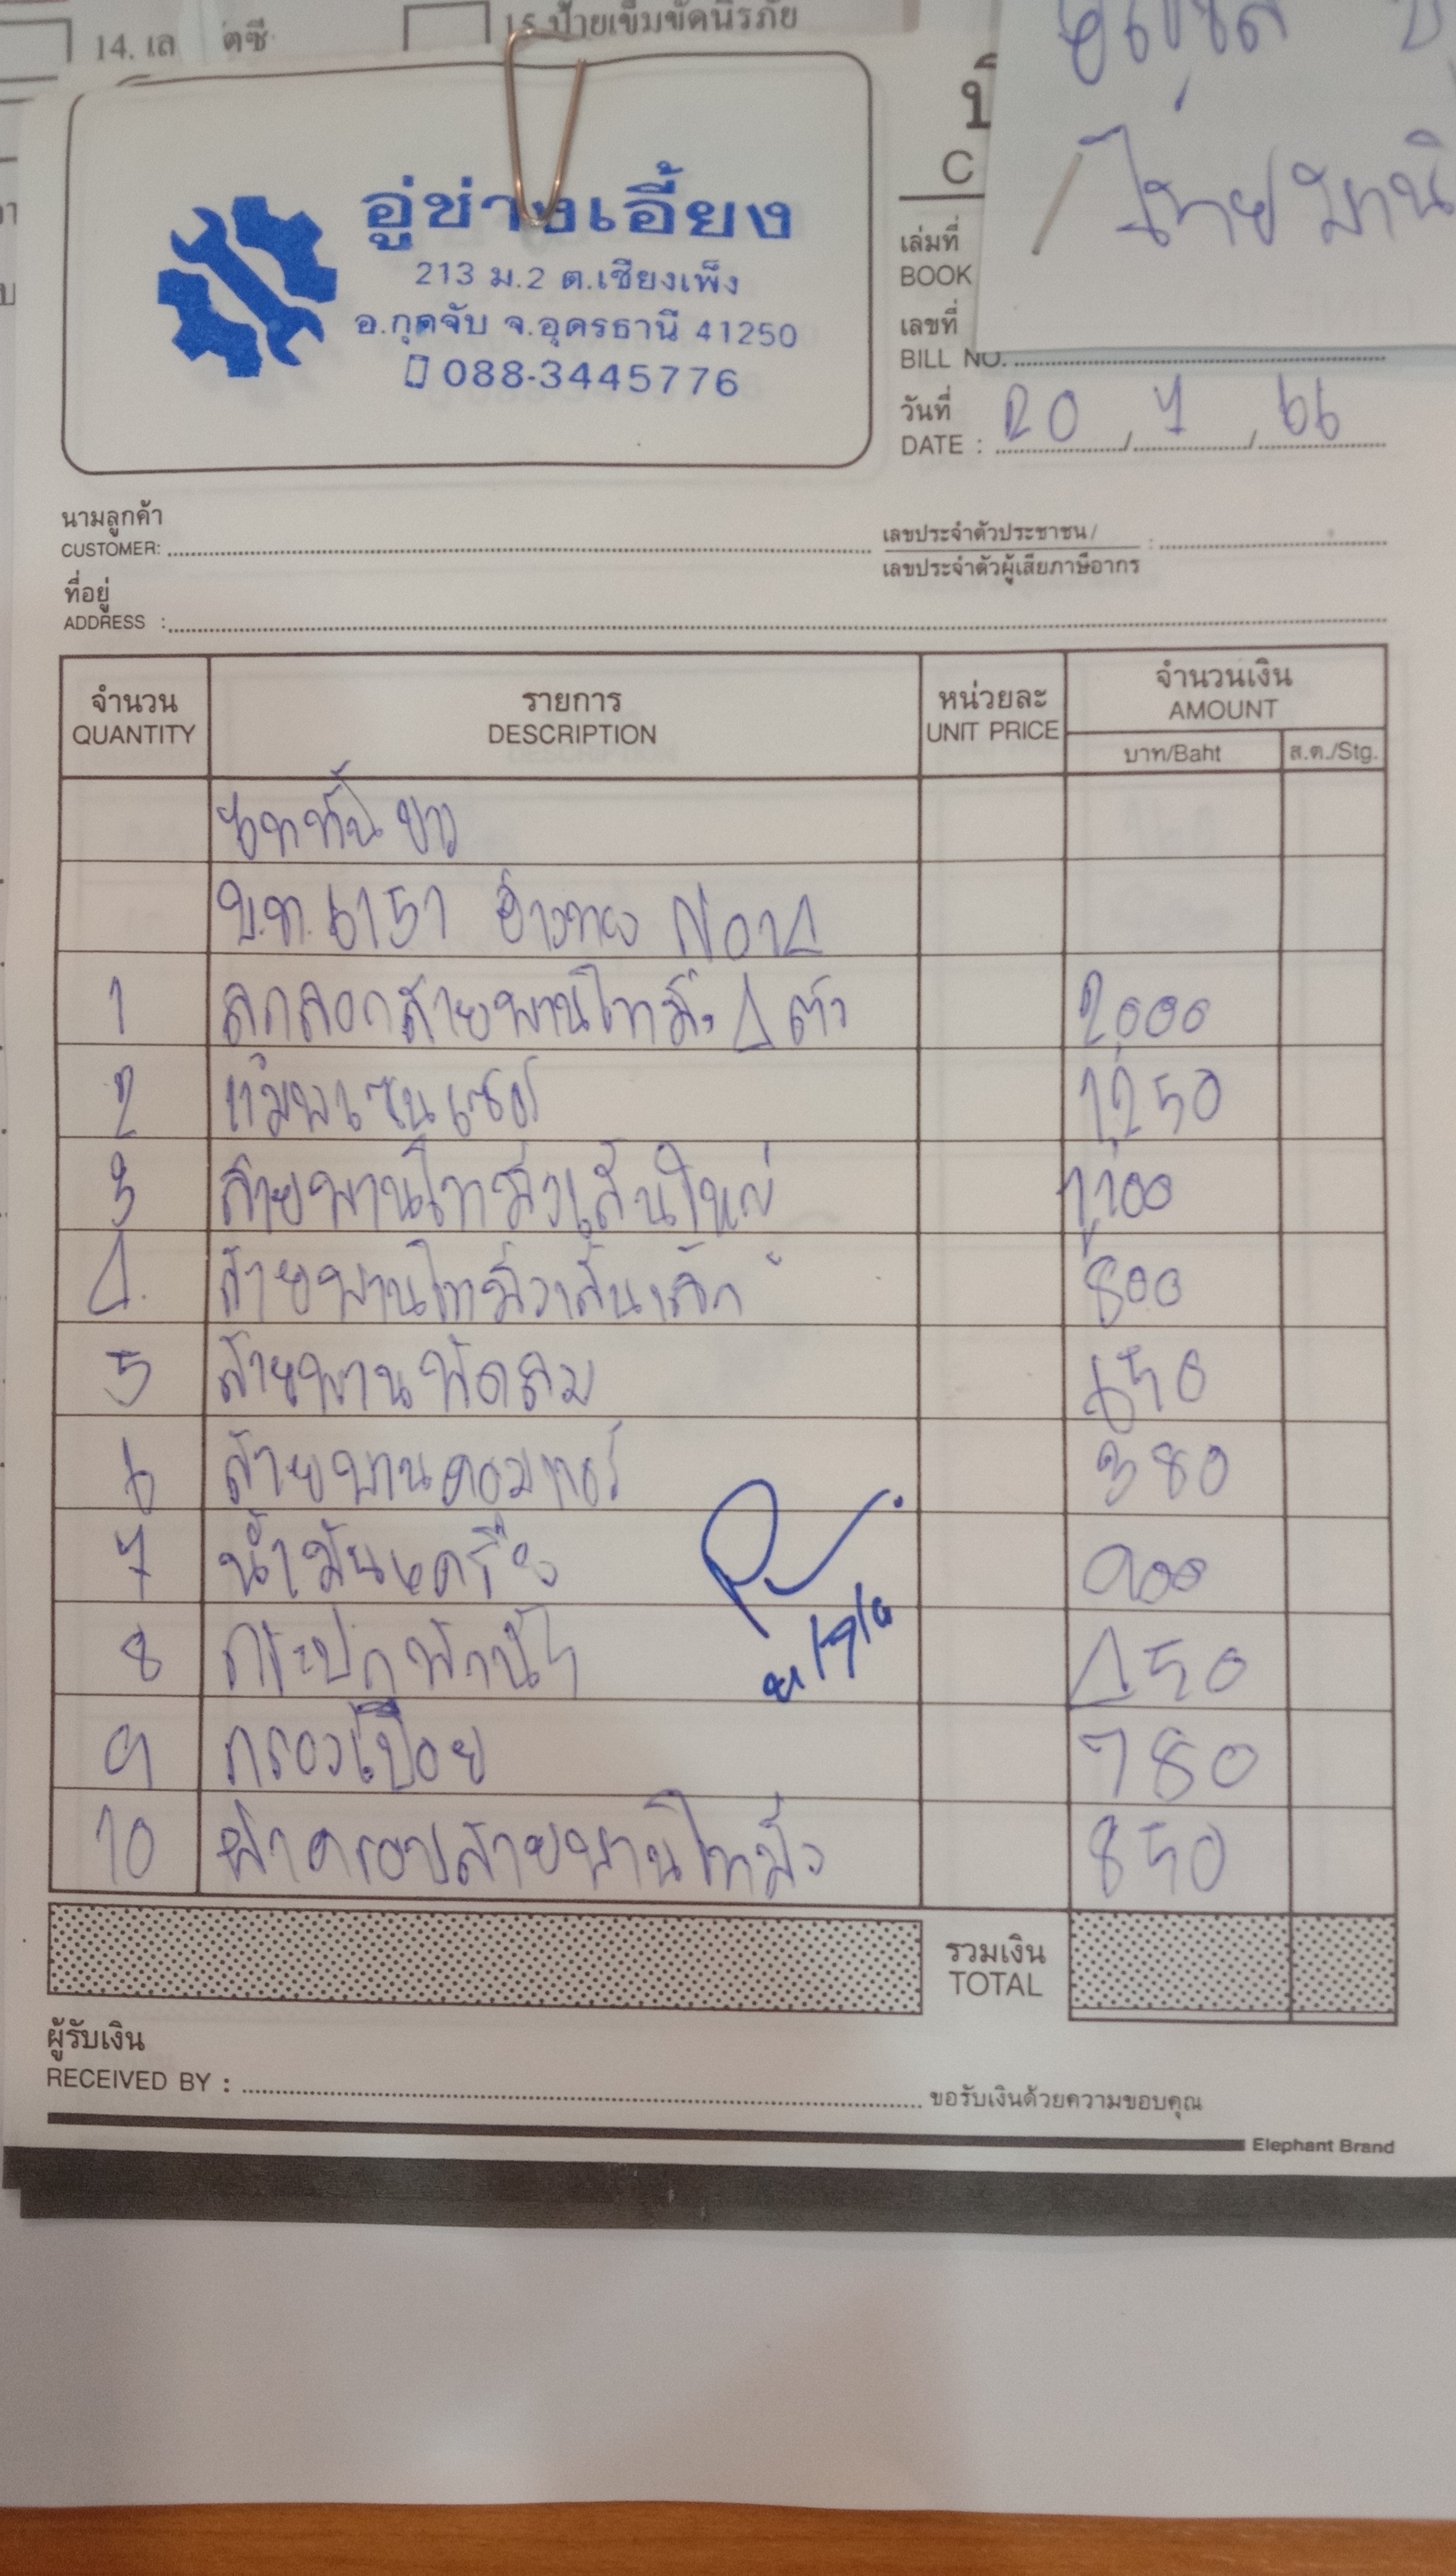 14. เล ตซี
15.ป้ายเข็มขัดนิรภัย
อู่ช่างเอี้ยง
213 ม.2 ต.เชียงเพ็ง
อ.กุดจับ จ.อุดรธานี 41250
088-3445776
C
เล่มที่
BOOK
เลขที่
BILL NO.
วันที่
DATE : 20 / 7 / 66
นามลูกค้า
CUSTOMER:
เลขประจำตัวประชาชน /
เลขประจำตัวผู้เสียภาษีอากร :
ที่อยู่
ADDRESS :
จำนวน รายการ หน่วยละ จำนวนเงิน
QUANTITY DESCRIPTION UNIT PRICE AMOUNT
บาท/Baht ส.ต./Stg.
ขาว
6151 อ่างทอง
1 ลูกลอกสายพานไทมิ่ง 4 ตัว 2,000
2 1,250
3 สายพานไทมิ่งเส้นใหญ่ 1,100
4. สายพานไทมิ่งเส้นเล็ก 800
5 สายพานพัดลม 650
6 สายพานคอมแอร์ 380
7 น้ำมันเครื่อง 900
8 กระปุกพักน้ำ 450
9 กรองเปือย 780
10 ฝาครอบสายพานไทมิ่ง 850
รวมเงิน
TOTAL
ผู้รับเงิน
RECEIVED BY : ขอรับเงินด้วยความขอบคุณ
Elephant Brand